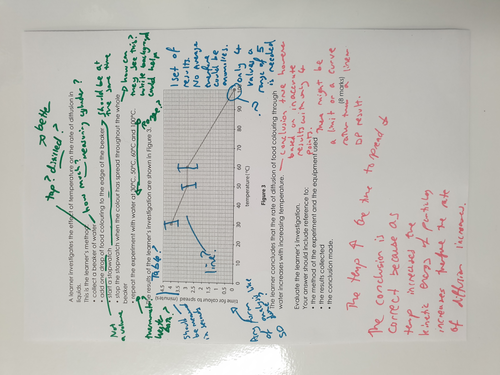 A learner investigates the effect of temperature on the rate of diffusion in
liquids.
This is the learner's method:
• collect a beaker of water
• add one drop of food colouring to the edge of the beaker
• start a stopwatch
• stop the stopwatch when the colour has spread throughout the whole
beaker
• repeat the experiment with water at 30°C, 50°C, 60°C and 100°C.
The results of the learner's investigation are shown in Figure 3.
time for colour spread (minutes)
4.5
4
3.5
3
2.5
2
1.5
1
0.5
0
0 10 20 30 40 50 60 70 80 90 100
temperature (°C)
Figure 3
The learner concludes that the rate of diffusion of food colouring through
water increases with increasing temperature.
Evaluate the learner's investigation.
Your answer should include reference to:
• the method of the experiment and the equipment used
• the results collected
• the conclusion made.
(8 marks)
tap? distilled? → better
how much? measuring cylinder?
should be at
the same time
Not
a volume
→ how can
they see this?
white background
could help
thermometer
better
1 set of
results.
No average
therefore
could be
anomalies.
only 4
values a
range of 5
is needed
line?
Should
be measured
in seconds
Any form
of
SD
conclusion true however
based on inaccurate
results with only 4
points.
There might be
a limit or a curve
rather than a linear
result.
The temp ↑ the time to spread ↓
The conclusion is
correct because as
temp increases the
kinetic energy of particles
increases therefore the rate
of diffusion increases.